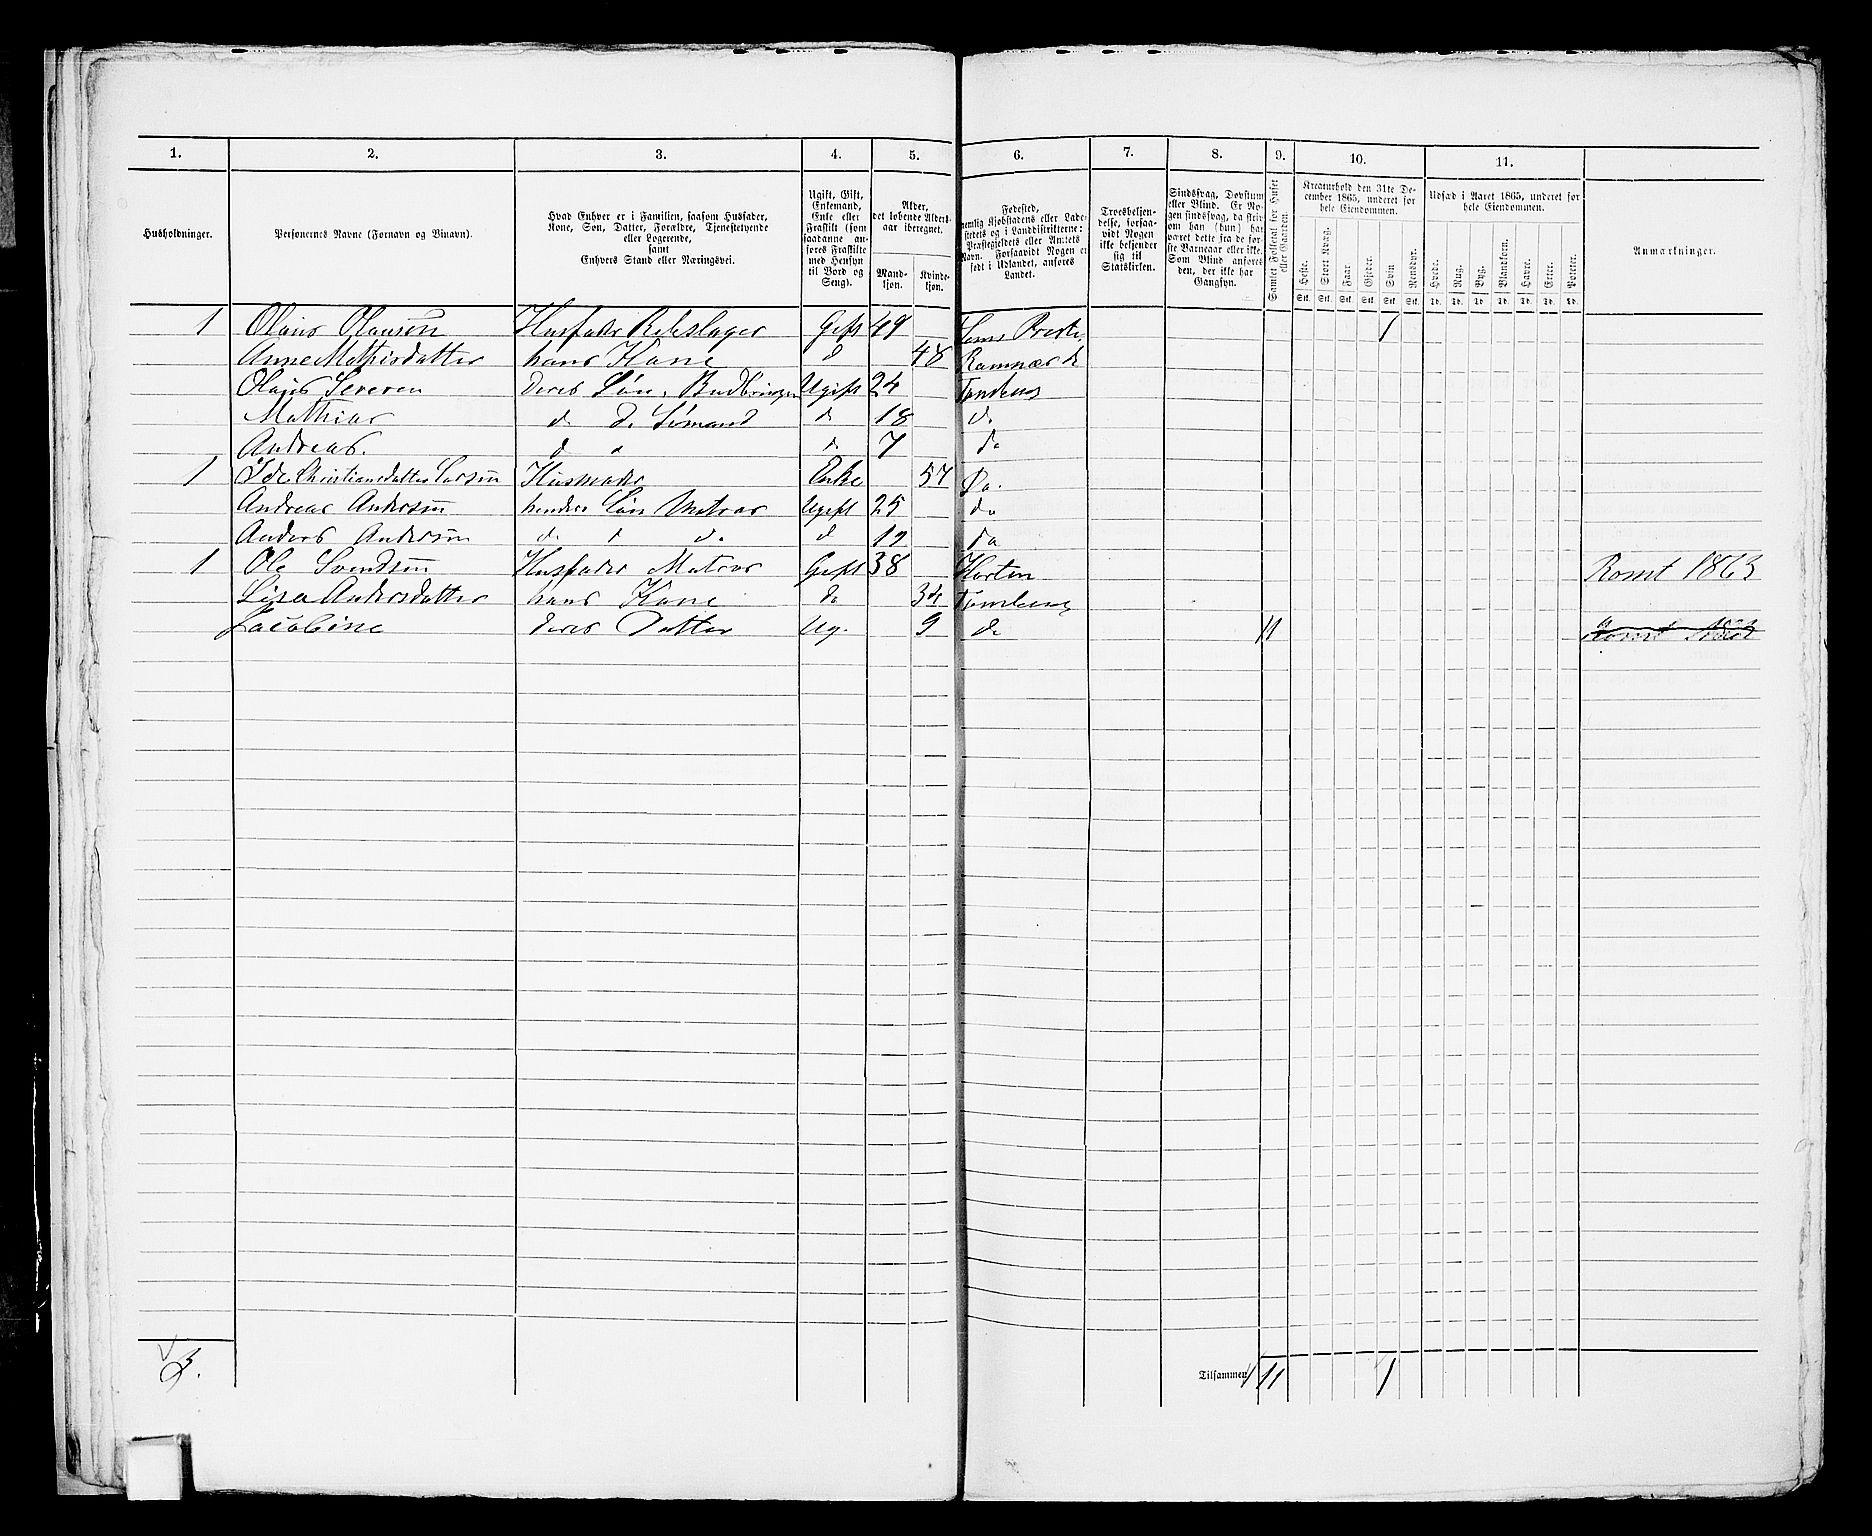 1. 2. 3. 4. 5. 6. 7. 8. 9. 10. 11.
Husholdninger.
Personernes Navne (Fornavn og Tilnavn).
Hvad Enhver er i Familien, saasom Husfader,
Kone, Søn, Datter, Forældre, Tjenestetyende
eller Logerende,
samt
Enhvers Stand eller Næringsvei.
Ugift, Gift,
Enkemand,
Enke eller
Fraskilt (som
saadanne an-
føres Fraskilte
med Hensyn
til Bord og
Seng).
Alder,
det løbende Alders-
aar iberegnet.
Mand-
kjøn.
Kvinde-
kjøn.
Fødested,
nemlig Kjøbstadens eller Lade-
stedets og i Landdistrikterne:
Præstegjeldets eller Amtets
Navn. Forsaavidt Nogen er
født i Udlandet, anføres
Landet.
Troesbekjen-
delse, forsaa-
vidt Nogen
ikke bekjender
sig til
Statskirken.
Sindssvag, Døvstum
eller Blind. Er No-
gen sindssvag, da skriv
om han (hun) har
været dette fra de før-
ste Barneaar eller ikke.
Som Blind anføres
den, der ikke har
Gangsyn.
Samlet Folketal for Huset
eller Gaarden.
Kreaturhold den 31te De-
cember 1865, underet for
hele Eiendommen.
Heste. Stort Kvæg. Faar Gjeder. Svin Rensdyr.
Stk. Stk. Stk. Stk. Stk. Stk.
Udsæd i Aaret 1865, underet for
hele Eiendommen.
Hvede. Rug. Byg. Blandkorn. Havre. Erter. Poteter.
Td. Td. Td. Td. Td. Td. Td.
Anmærkninger.
1 Olaus Olausøn Husfader Rebslager Gift 49 Sems Preste. 1
Anne Mathisdatter hans Kone d 48 Ramnæs
Olaus Severen Deres Søn, Ugift 24 Tønsberg
Mathias d. d. Sømand d. 18 d.
Andreas. d d. 7 do
1 Christiansdatter Husmoder Enke 57 Do.
Andreas Andersøn hendes Søn Matros Ugift 25 do
Anders Andersøn d. d do d do
1 Ole Svendsøn Husfader Matros Gift 38 Horten Romt 1863
Lisa Andersdatter hans Kone do Tønsberg
Jacobine deres Datter Ug. 9 d. 11
3.
Tilsammen 11 1